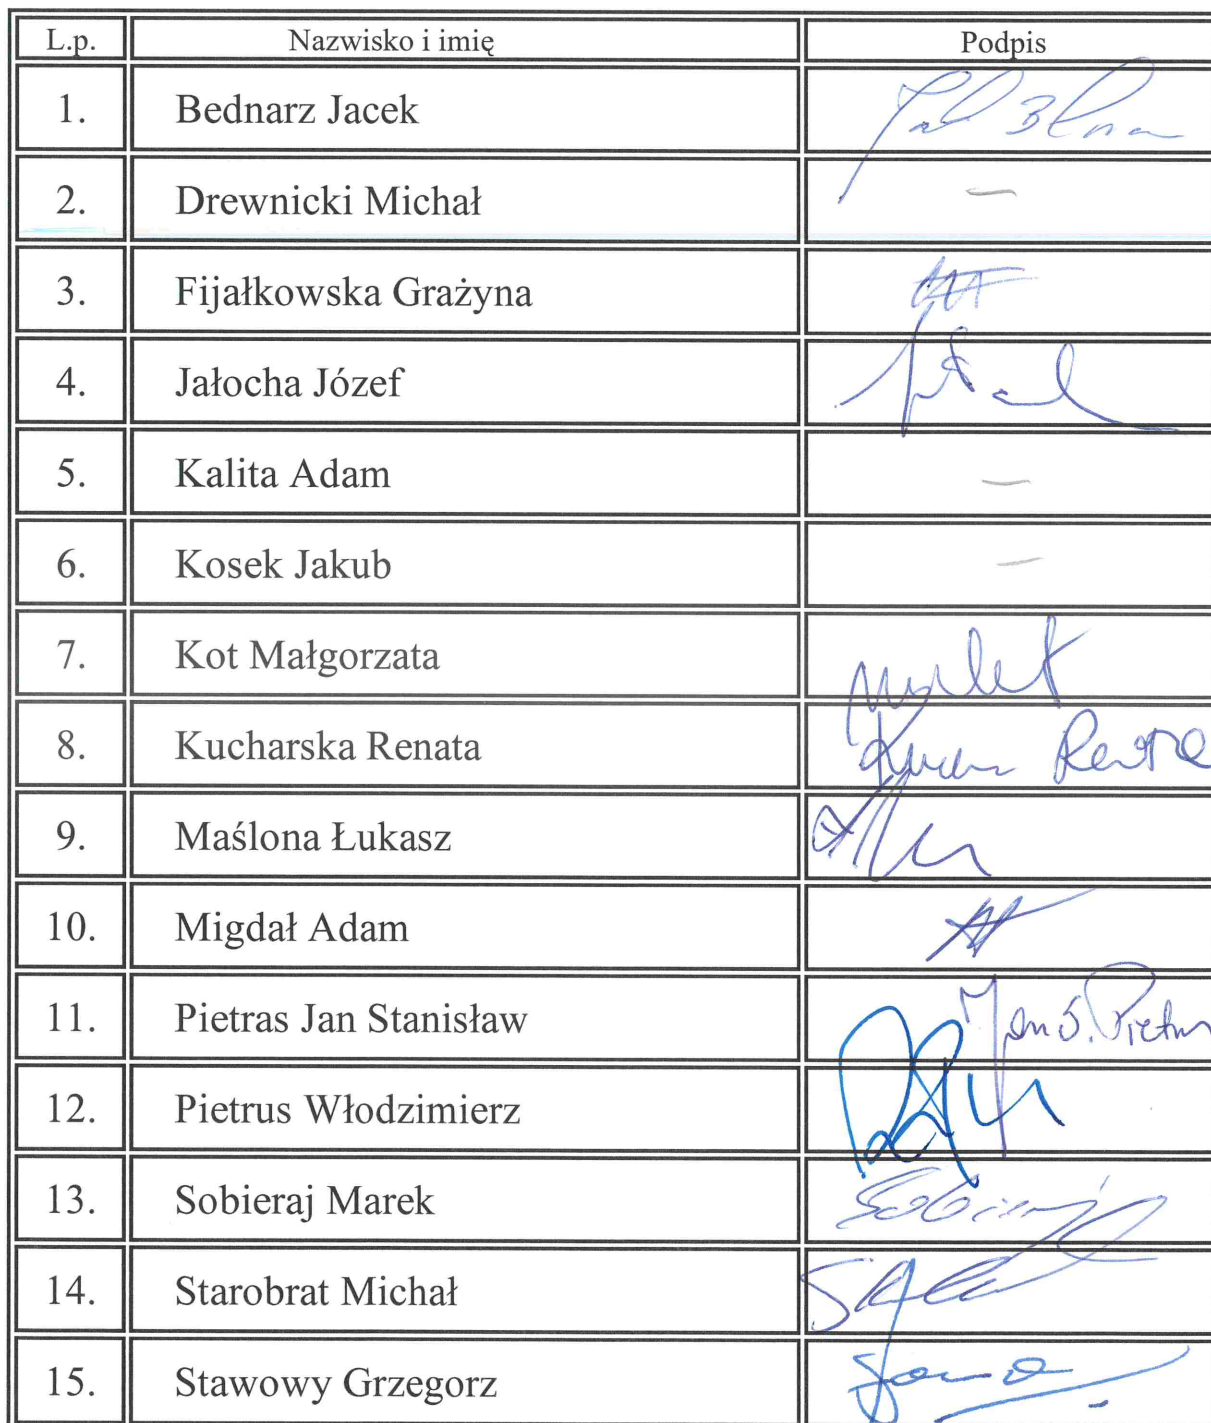 L.p. Nazwisko i imię Podpis
1. Bednarz Jacek
2. Drewnicki Michał —
3. Fijałkowska Grażyna
4. Jałocha Józef
5. Kalita Adam —
6. Kosek Jakub —
7. Kot Małgorzata
8. Kucharska Renata
9. Maślona Łukasz
10. Migdał Adam
11. Pietras Jan Stanisław Jan S. Pietras
12. Pietrus Włodzimierz
13. Sobieraj Marek Sobieraj
14. Starobrat Michał
15. Stawowy Grzegorz